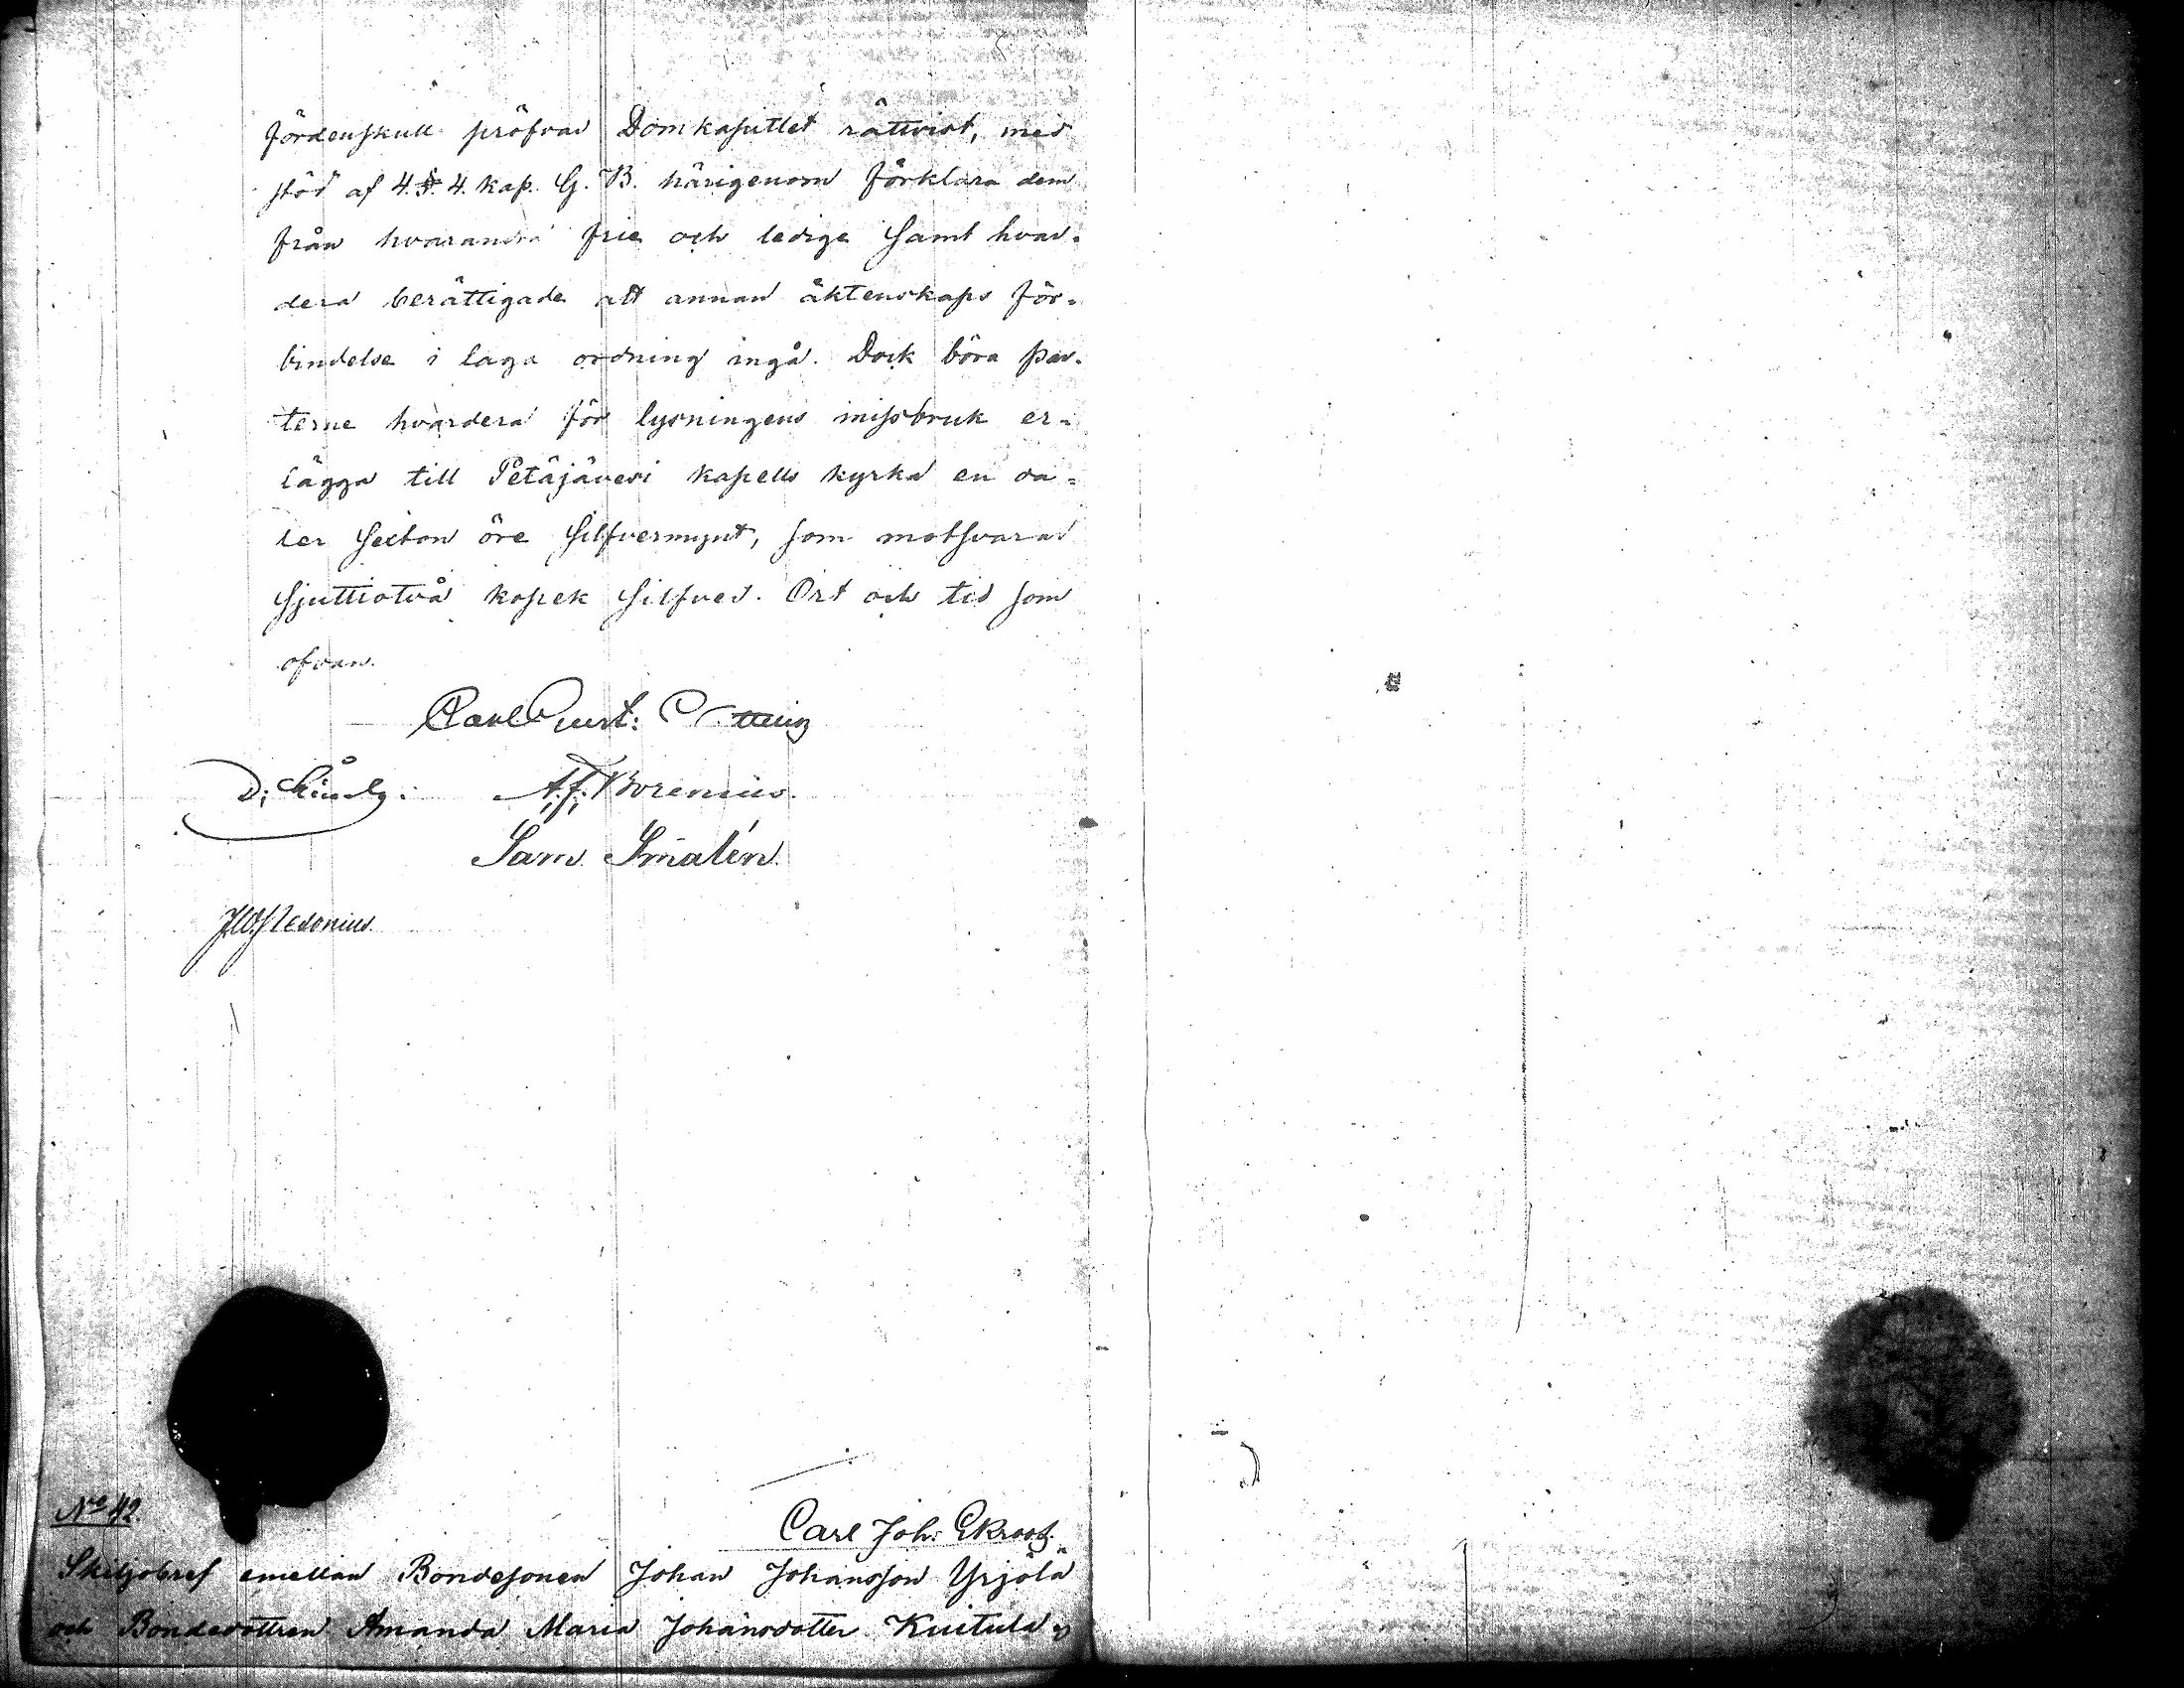 fördenskull pröfvar Domkapitlet rättvist, med
stöd af 4. §. 4. kap. G. B. härigenom förklara dem
från hvarandra frie och ledige samt hvar-
dera berättigade att annan äktenskaps för-
bindelse i laga ordning ingå. Dock böra par-
terne hvardera för lysningens missbruk er-
lägga till Petäjävesi kapells kyrka en da-
ler sexton öre silfvermynt, som motsvarar
sjuttiotvå kopek silfver. Ort och tid som
ofvan.
Carl
A. F. Borenius.
Sam. Smalén.
No 42.
Carl Joh: Ekroos.
Skiljobref emellan Bondesonen Johan Johansson Yrjölä
och Bondedottren Amanda Maria Johansdotter Kuitula